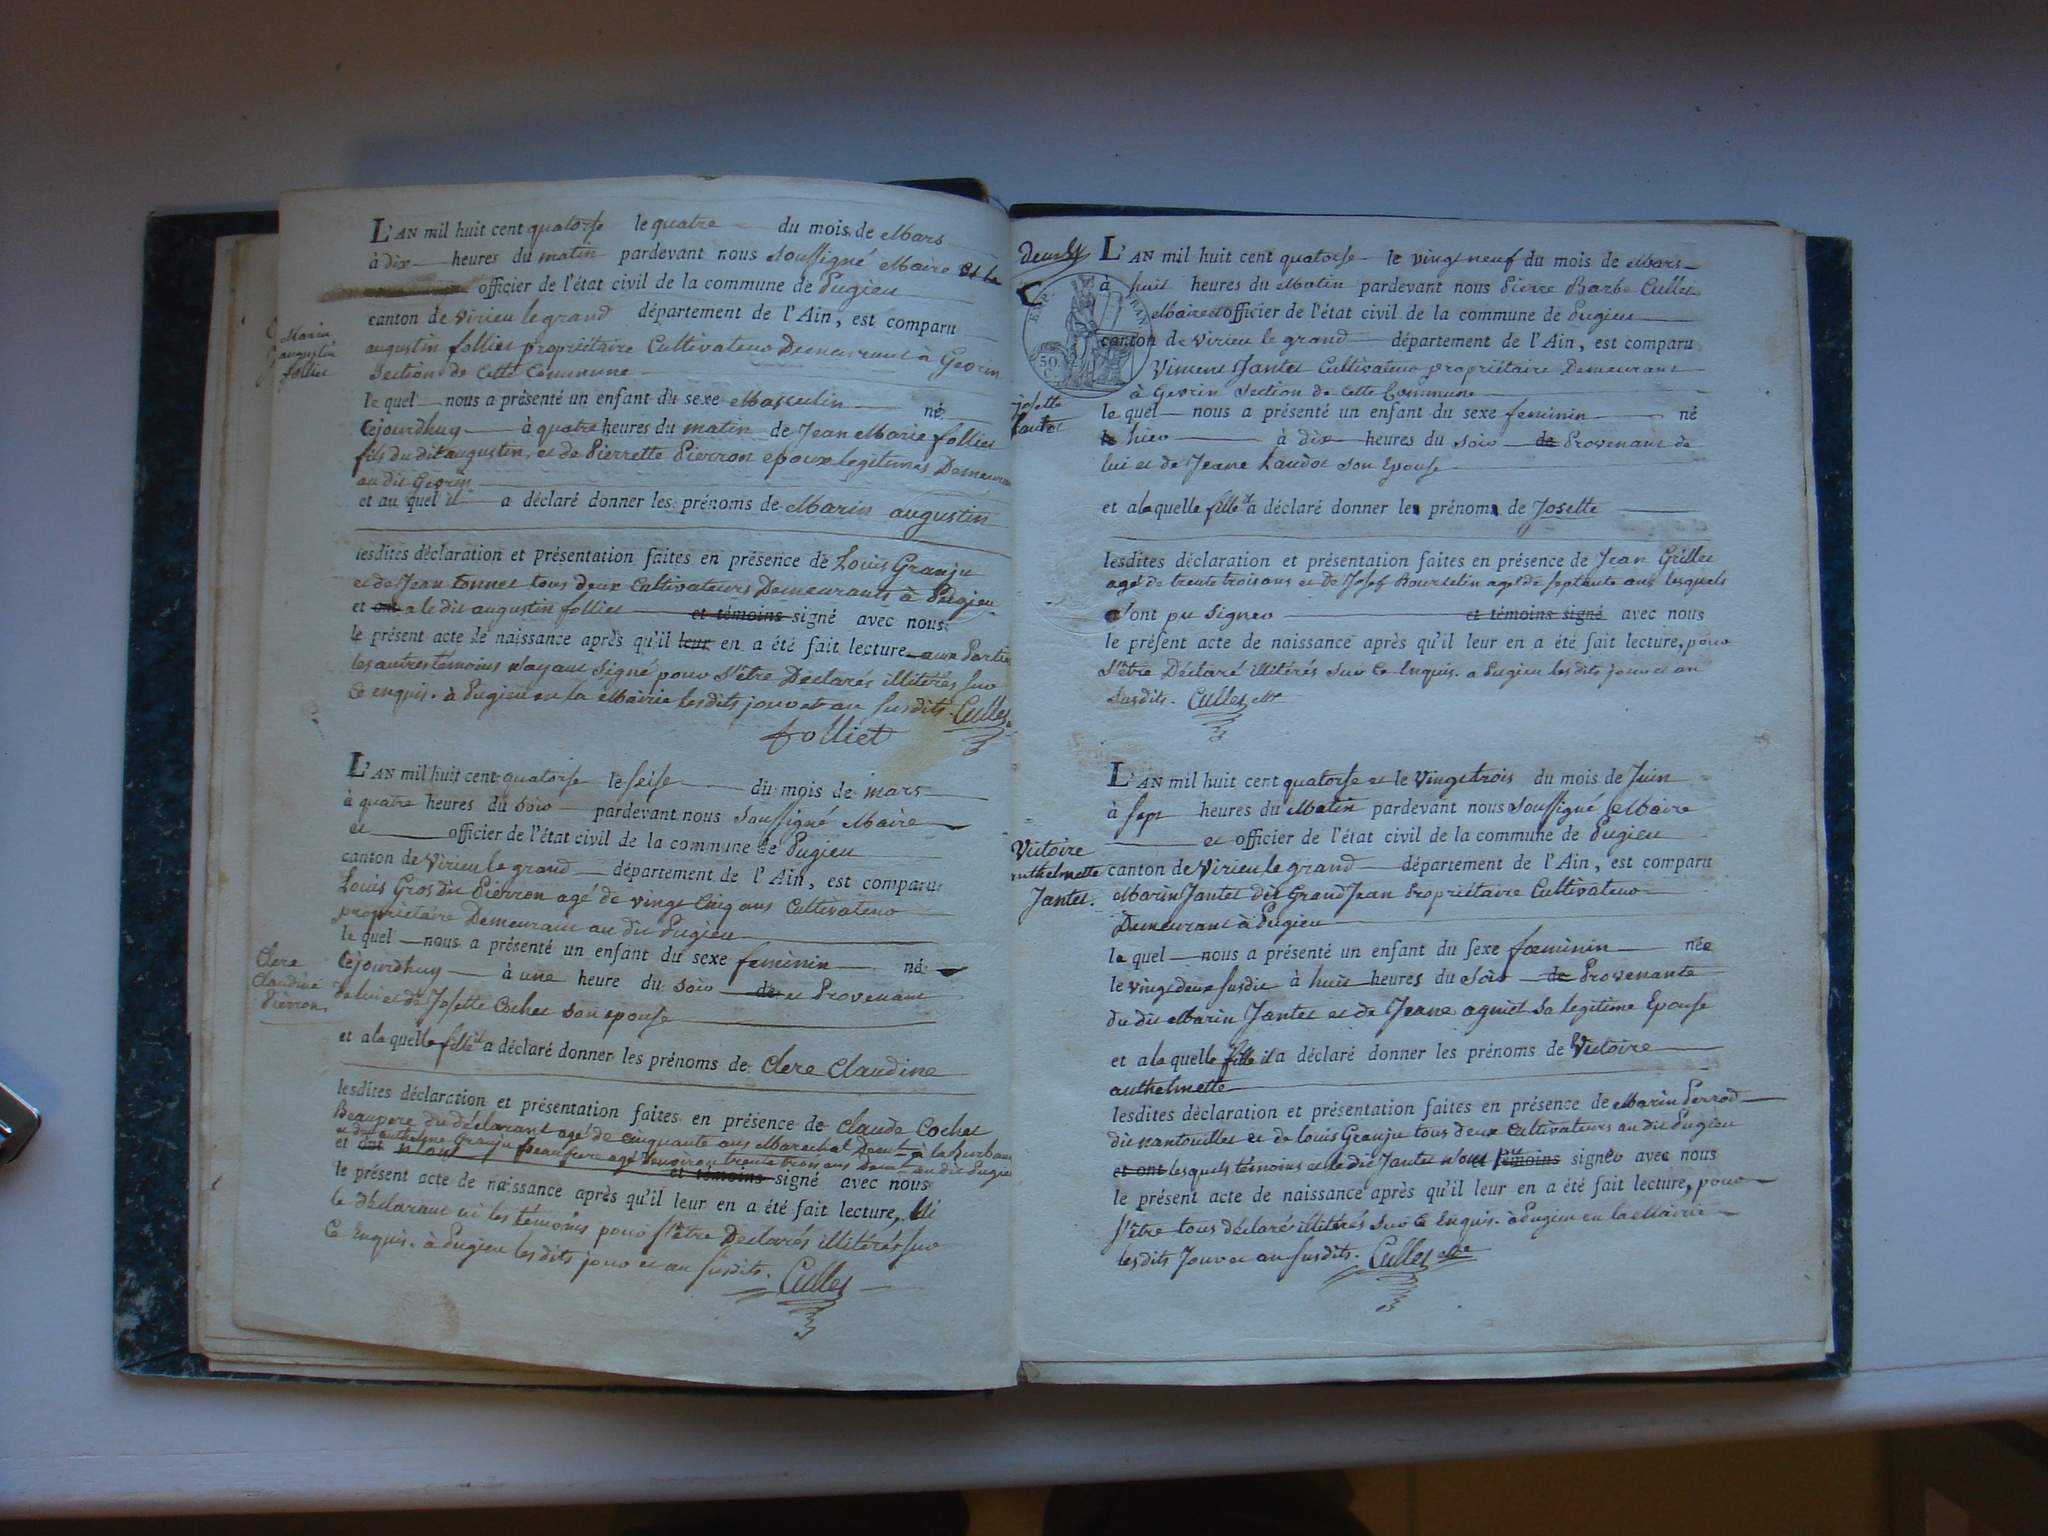 Marin
augustin
folliet
L'AN mil huit cent quatorse le quatre du mois de Mars
à dix heures du matin pardevant nous soussigné Maire et le
officier de l'état civil de la commune de Pugieu
canton de Virieu le grand département de l'Ain, est comparu
augustin folliet propriétaire Cultivateur Demeurant à Gevrin
Section de Cette Commune
le quel nous a présenté un enfant du sexe Masculin né
Cejourdhuy à quatre heures du matin de Jean Marie folliet
fils du dit augustin, et de Pierrette Pierron epoux legitimes Demeuran
au dit Gevrin
et au quel il a déclaré donner les prénoms de Marin augustin
lesdites déclaration et présentation faites en présence de Louis Granju
et de Jean tonnet tous deux Cultivateurs Demeurants à Pugieu
et ont a le dit augustin folliet et témoins signé avec nous
le présent acte de naissance après qu'il leur en a été fait lecture aux Partie
les autres témoins n'ayant signé pour s'être Déclarés illitérés sur
Ce enquis. à Pugieu en la Mairie les dits jour et an susdits. Cullet
folliet
Clere
Claudine
Pierron
L'AN mil huit cent quatorse le seise du mois de mars
à quatre heures du soir pardevant nous soussigné Maire
et officier de l'état civil de la commune de Pugieu
canton de Virieu le grand département de l'Ain, est comparu
Louis Gros dit Pierron agé de vingt Cinq ans Cultivateur
propriétaire Demeurant au dit Pugieu
le quel nous a présenté un enfant du sexe feminin né
Cejourdhuy à une heure du soir de et Provenant
de lui et de Josette Cochet son epouse
et a la quelle fille il a déclaré donner les prénoms de Clere Claudine
lesdites déclaration et présentation faites en présence de Claude Cochet
Beaupere du déclarant agé de cinquante ans Marechal Demt à la Burban
et de anthelme Granju Beaufrere agé d'environ trente trois ans Demt au dit Pugieu
et ont n'ont et témoins signé avec nous
le présent acte de naissance après qu'il leur en a été fait lecture, Ni
le déclarant ni les témoins pour s'être Déclarés illitérés sur
Ce Enquis. à Pugieu les dits jour et an susdits. Cullet
EMP. FRAN.
50
C.
josette
L'AN mil huit cent quatorse le vingt neuf du mois de Mars
à huit heures du Matin pardevant nous Pierre Barbe Cullet
Maire et officier de l'état civil de la commune de Pugieu
canton de Virieu le grand département de l'Ain, est comparu
Vincent Jantet Cultivateur propriétaire Demeurant
à Gevrin Section de Cette Commune
le quel nous a présenté un enfant du sexe feminin né
le hier à dix heures du soir de Provenant de
lui et de Jeane Laudot son Epouse
et a la quelle fille il a déclaré donner les prénoms de Josette
lesdites déclaration et présentation faites en présence de Jean Grillet
agé de trente trois ans et de Josef Bourselin agé de septante ans lesquels
n'ont pu signer et témoins signé avec nous
le présent acte de naissance après qu'il leur en a été fait lecture, pour
s'être Déclaré illitérés sur Ce Enquis. a Pugieu les dits jour et an
susdits. Cullet Mre
Victoire
anthelmette
Jantet.
L'AN mil huit cent quatorse et le Vingt trois du mois de Juin
à sept heures du Matin pardevant nous soussigné Maire
et officier de l'état civil de la commune de Pugieu
canton de Virieu le grand département de l'Ain, est comparu
Marin Jantet dit Grand Jean Propriétaire Cultivateur
Demeurant à Pugieu
le quel nous a présenté un enfant du sexe fœminin née
le vingt deux susdit à huit heures du soir de Provenante
du dit Marin Jantet et de Jeane aguiet sa legitime Epouse
et a la quelle fille il a déclaré donner les prénoms de Victoire
anthelmette
lesdites déclaration et présentation faites en présence de Marin Perrod
dit nantouillet et de louis Granju tous deux Cultivateurs au dit Pugieu
et ont lesquels témoins et le dit Jantet n'ont témoins signé avec nous
le présent acte de naissance après qu'il leur en a été fait lecture, pour
s'être tous déclaré illitérés sur Ce Enquis. à Pugieu en la Mairie
les dits Jour et an susdits. Cullet Mre